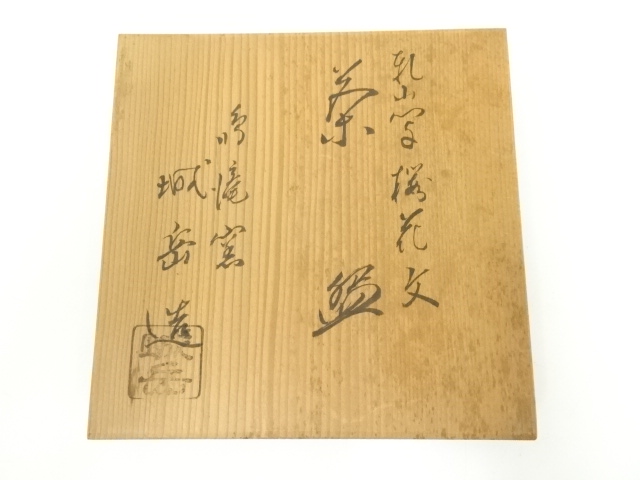 乾山写桜花文
茶盌
鳴滝窯
城岳造
城岳